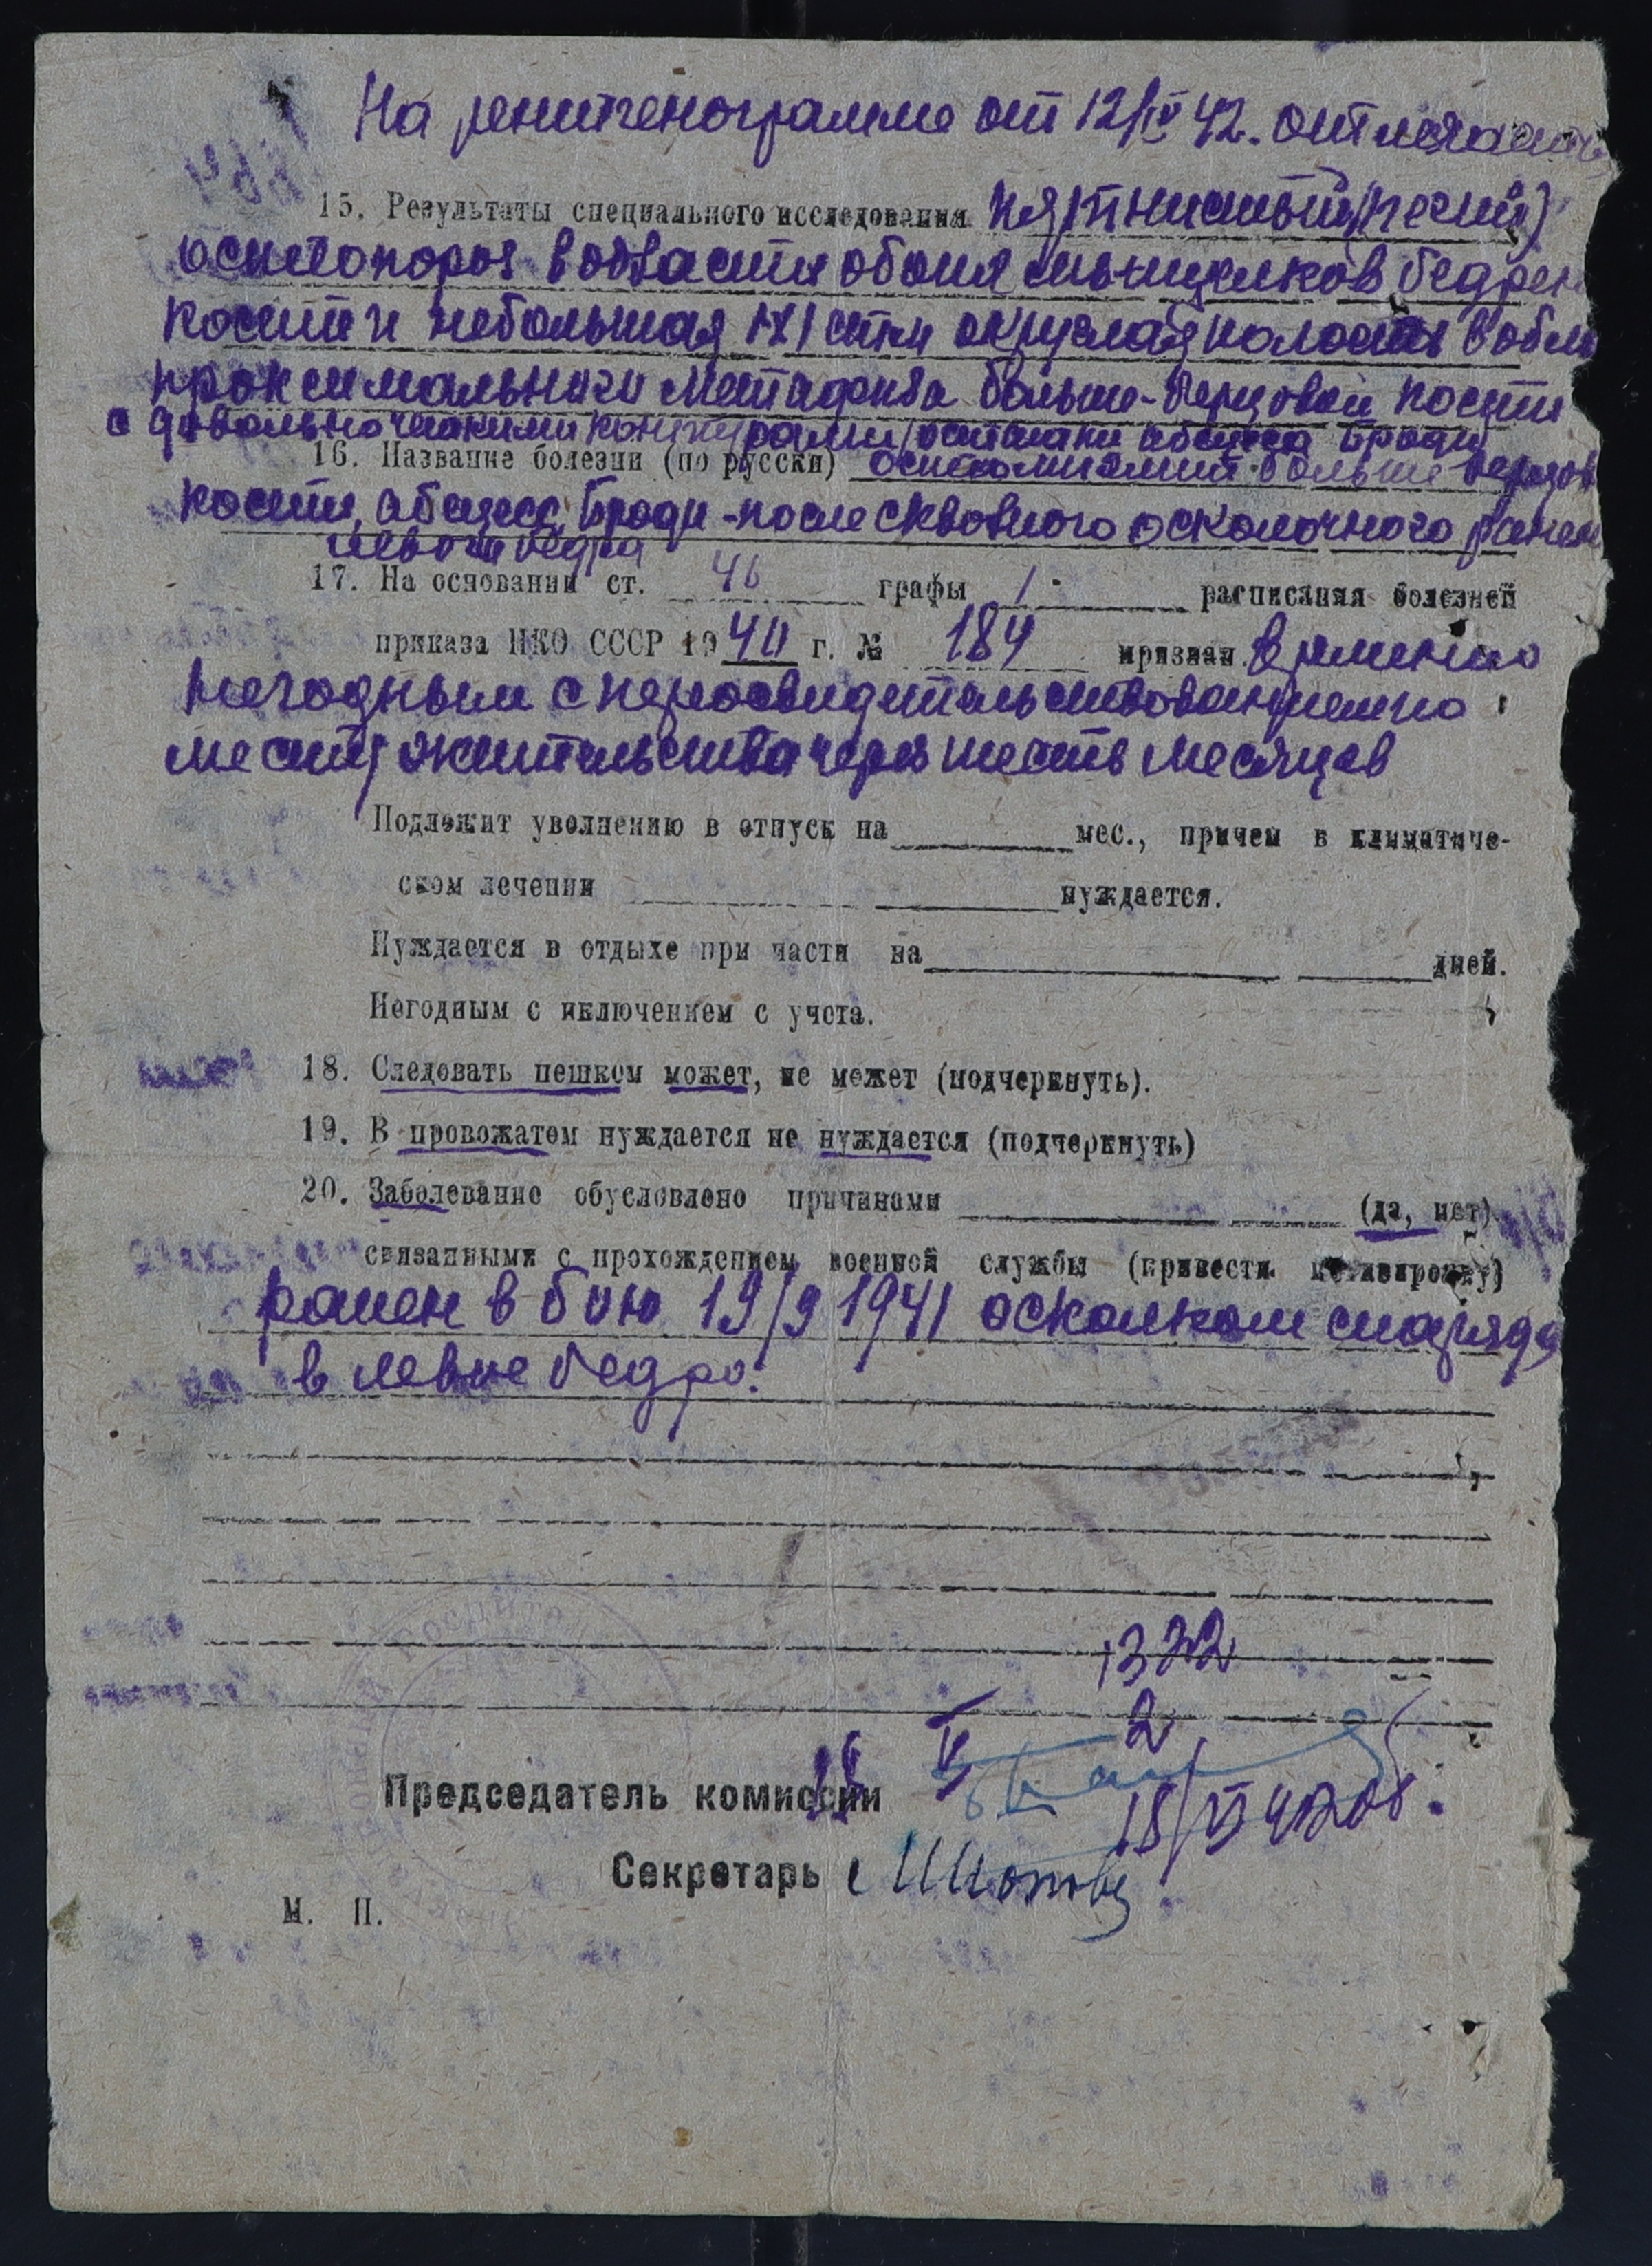 На рентгенограмме от 12/IV 42. отмечается
15. Результаты специального исследования пятнистый
остеопороз в области обоих мыщелков бедрен
кости и небольшая 1X1 стм округлая полость в обла
проксимального метафиза больше-берцовой кости
с довольно четкими контурами /остатки абсцесса Броди/
16. Название болезни (по русски) остеомиэлит больше берцов
кости, абсцесс Броди - после сквозного осколочного ранен
левого бедра
17. На основании ст. 46 графы 1 расписания болезней
приказа НКО СССР 1940 г. № 184 признан временно
негодным с переосвидетельствованием по
месту жительства через шесть месяцев
Подлежит увольнению в отпуск на мес., причем в климатиче-
ском лечении нуждается.
Нуждается в отдыхе при части на дней.
Негодным с иключением с учета.
18. Следовать пешком может, не может (подчеркнуть).
19. В провожатом нуждается не нуждается (подчеркнуть)
20. Заболевание обусловлено причинами (да, нет)
связанными с прохождением военной службы (привести мотивировку)
ранен в бою 19/9 1941 осколком снаряда
в левое бедро.
1332
2
Председатель комиссии
18/VI 42
Секретарь
М. П.